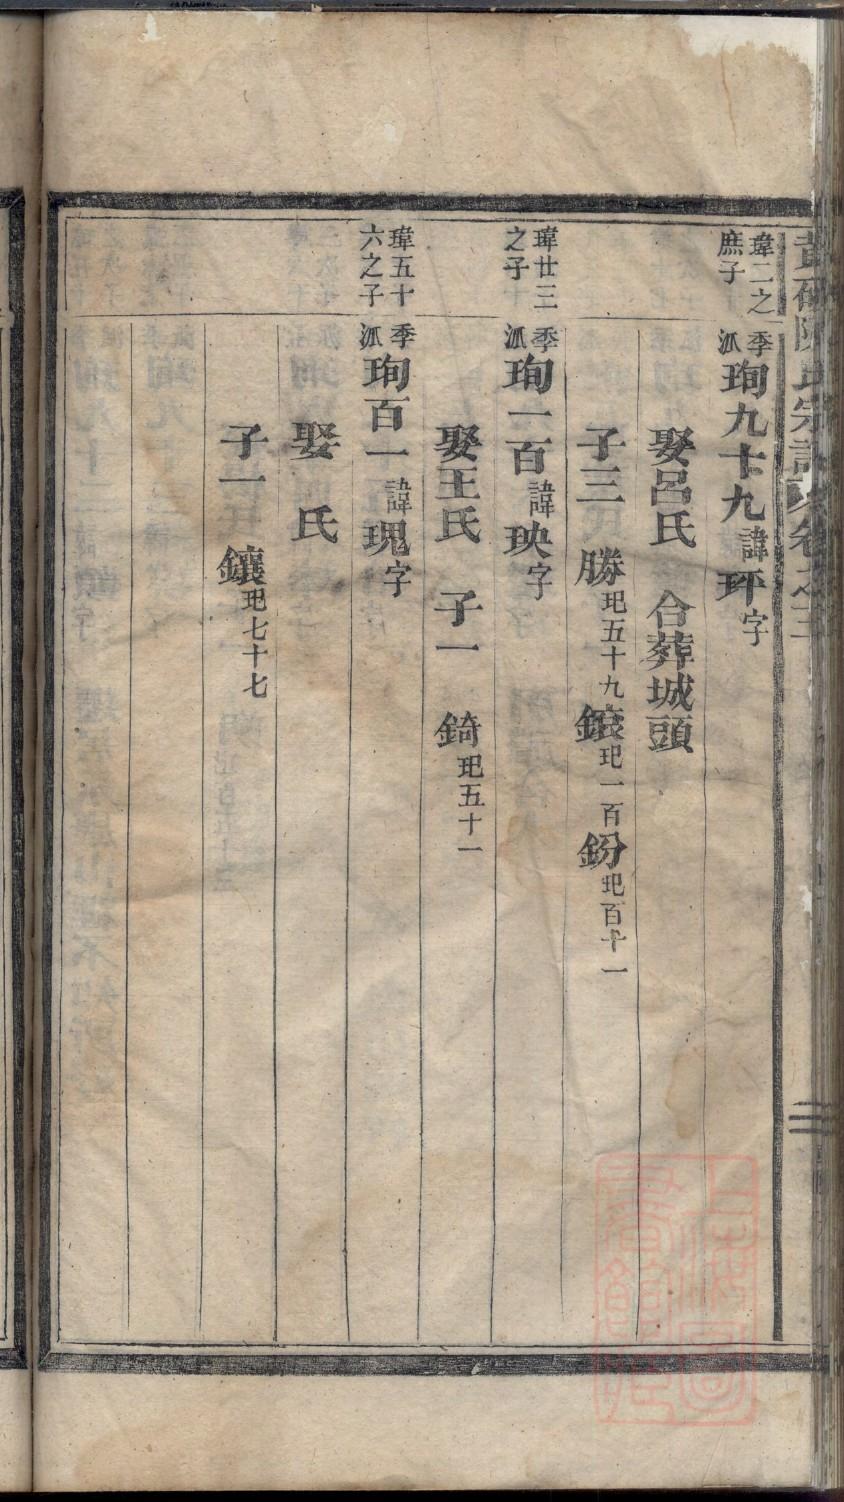 陳氏宗譜卷之三
瑋二之庶子
季派珣九十九諱玶字
娶呂氏 合葬城頭
子三 勝玘五十九 鎄玘一百 鈖玘百十一
瑋廿三之子
季派珣一百諱玦字
娶王氏 子一 錡玘五十一
瑋五十六之子
季派珣百一諱瑰字
娶 氏
子一 鑲玘七十七
上海圖書館藏